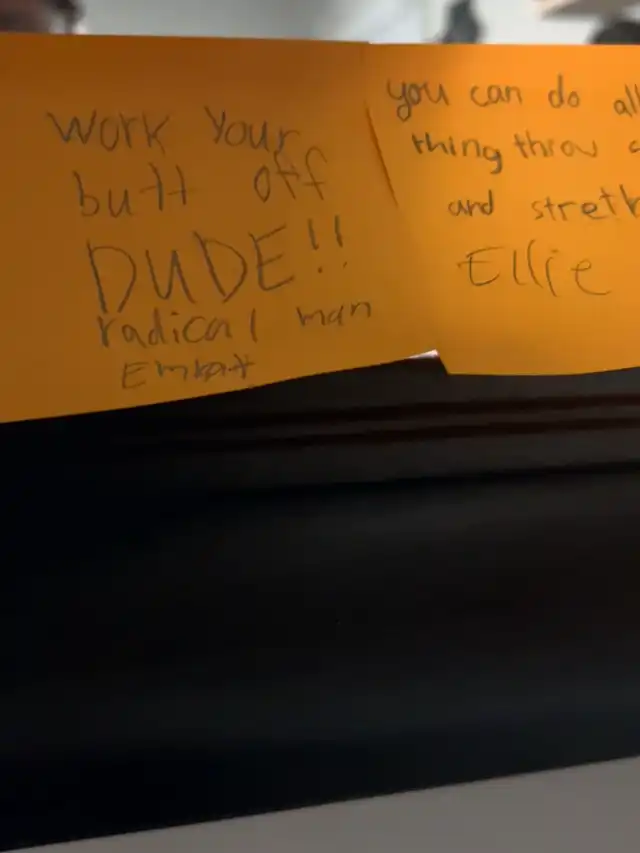 Work Your
butt off
DUDE!!
radical man
you can do all
thing throu
and stret
Ellie